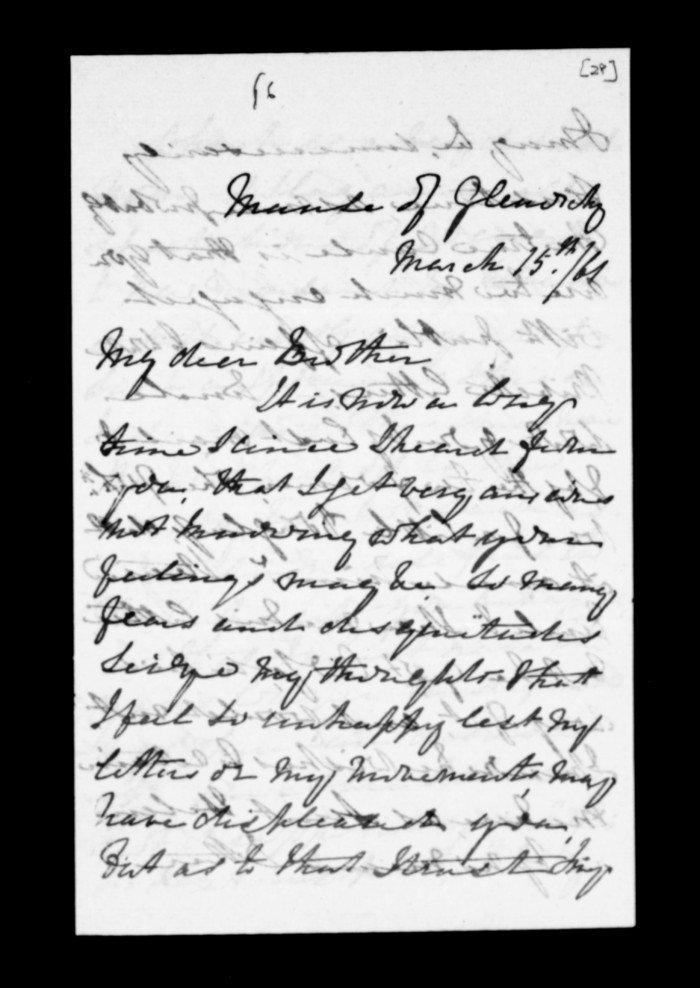 [28]
Manse of Glenorchy
March 15th/61
My dear Brother
It is now a long
time since I heard from
you, that I get very anxious
not knowing what your
feelings may be. So many
fears and disquietudes
seize my thoughts that
I feel so unhappy lest my
letters or my movements may
have displeased you,
But as to that I trust